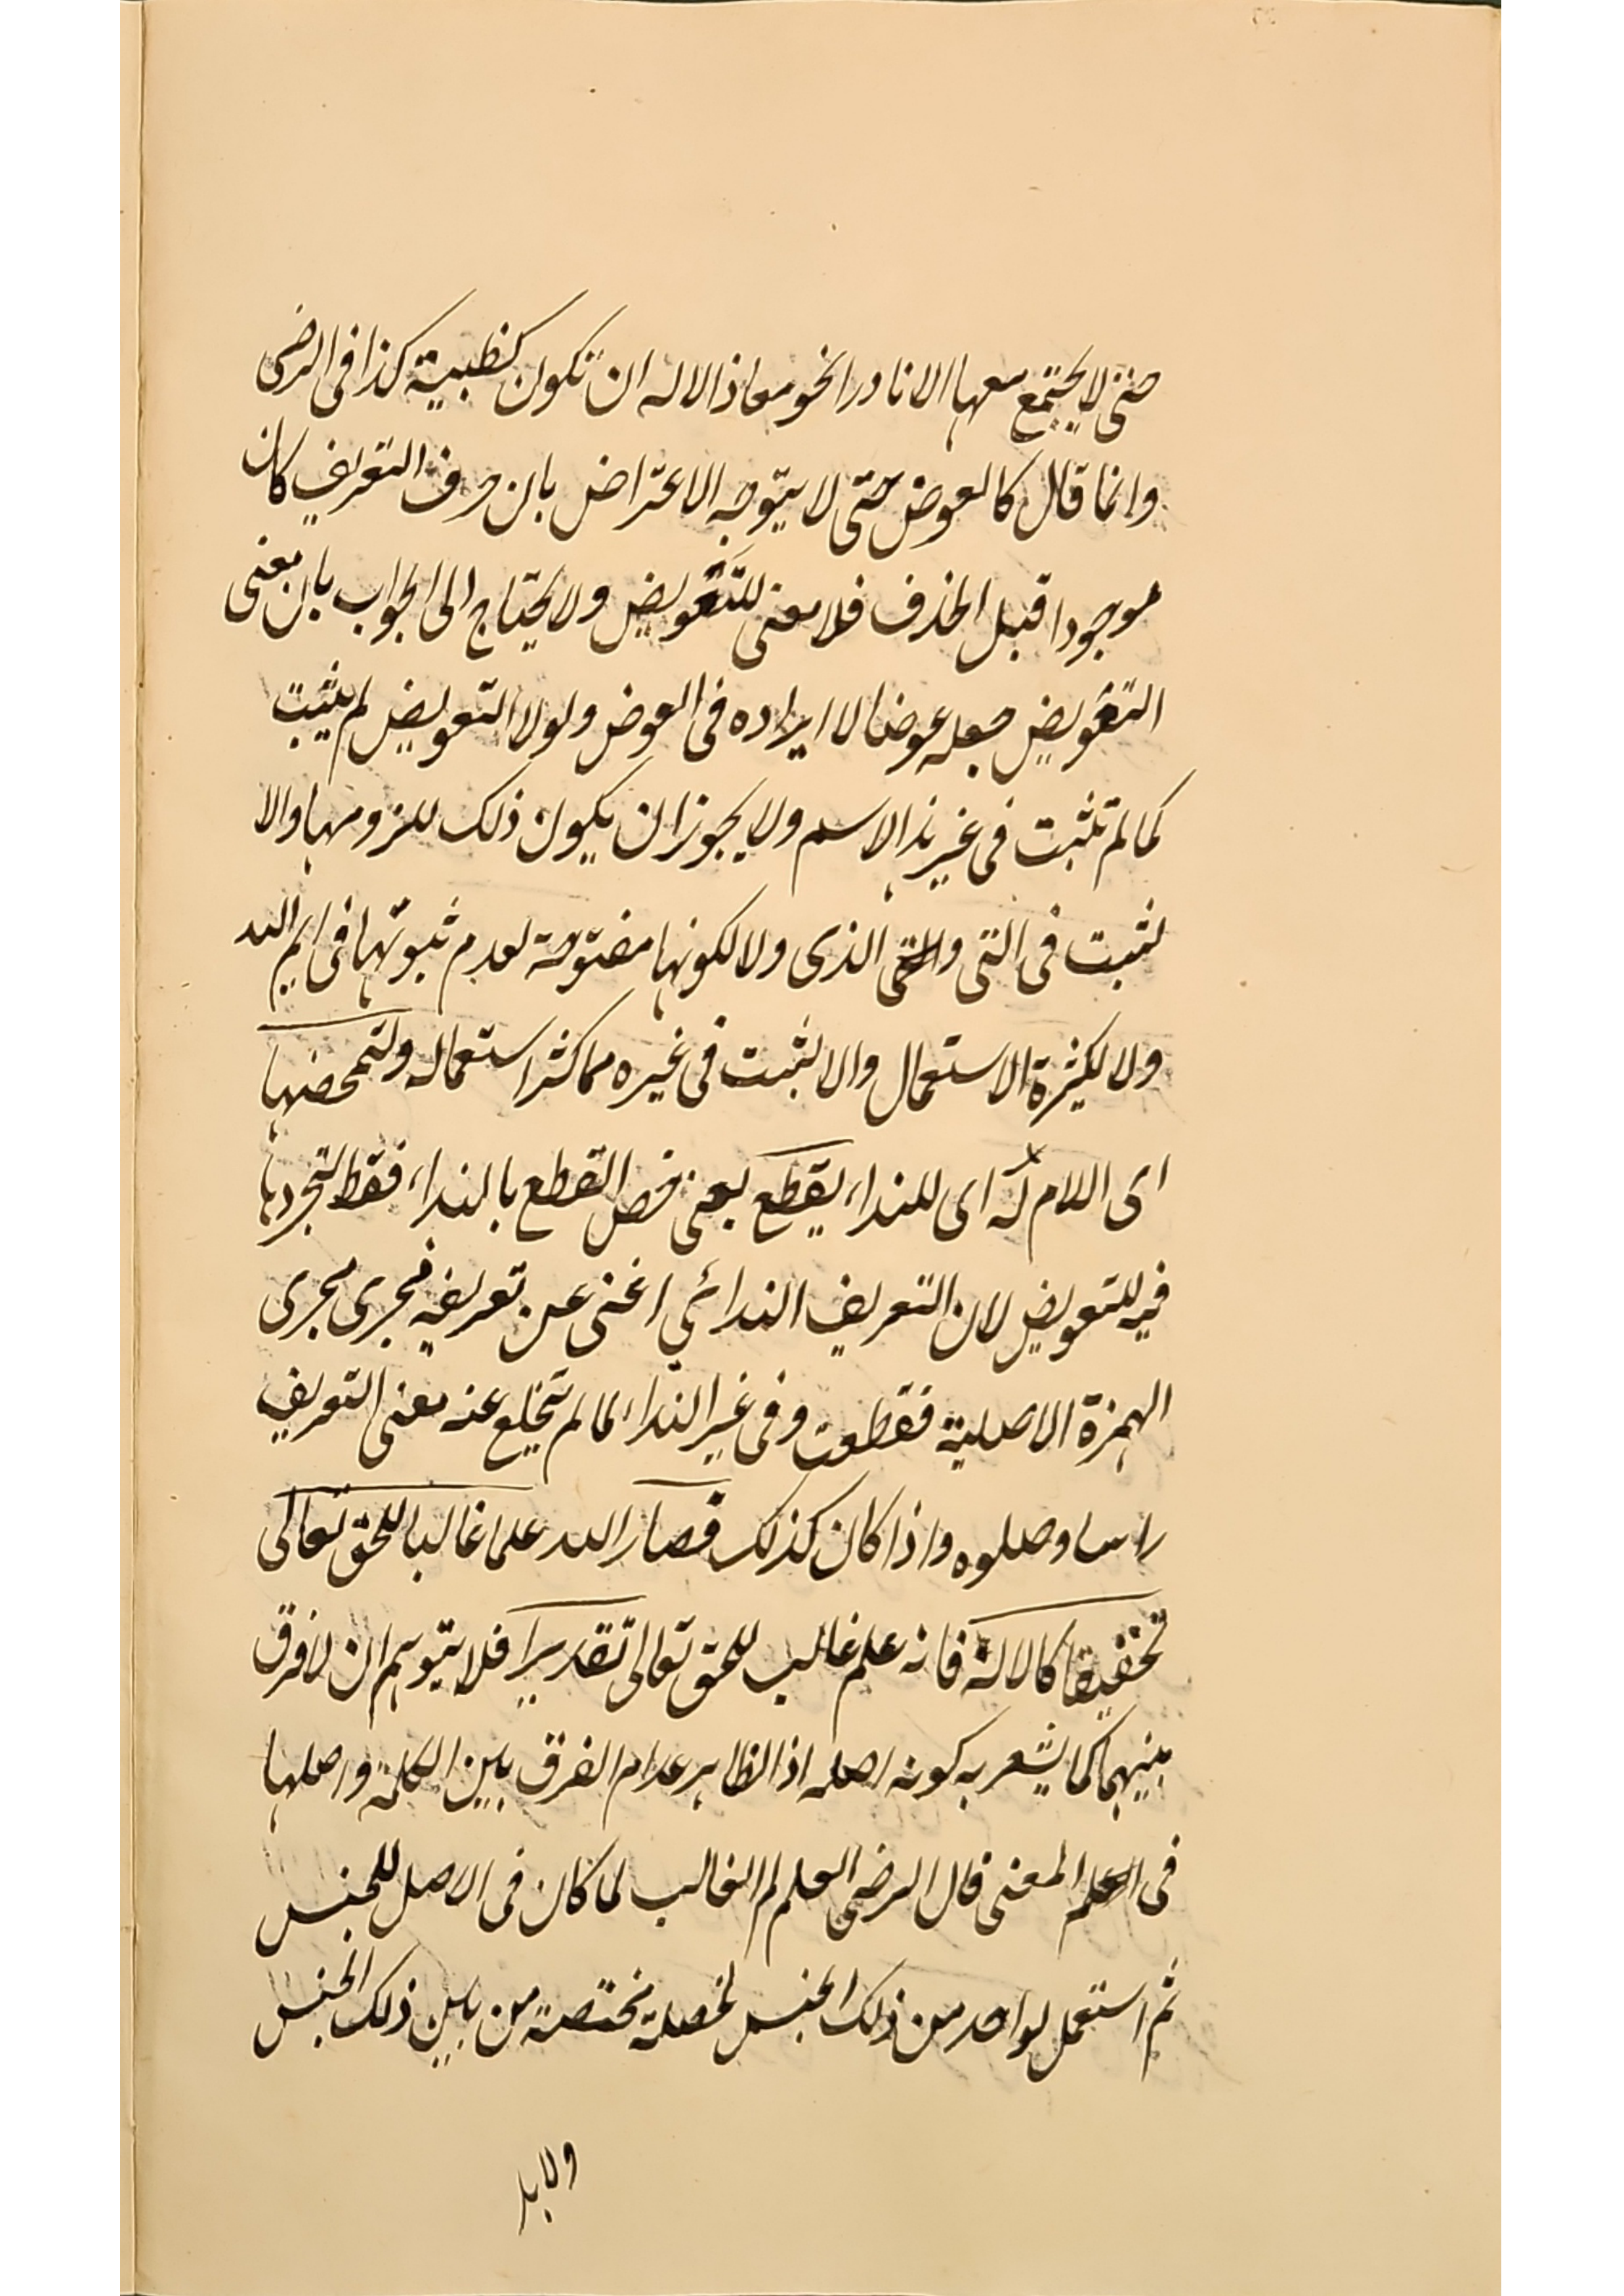 حتى لا يجتمع معها الا نادرا نحو معاذ الاله ان تكون كظبية كذا فى الرضى
وانما قال كالعوض حتى لا يتوجه الاعتراض بان حرف التعريف كان
موجودا قبل الحذف فلا معنى للتعويض ولا يحتاج الى الجواب بان معنى
التعويض جعله عوضا لا ايراده فى العوض ولولا التعويض لم يثبت
كما لم تثبت فى غير هذا الاسم ولا يجوز ان يكون ذلك للزومها والا
لثبت فى التى والذى ولا لكونها مفتوحة لعدم ثبوتها فى ايم الله
ولا لكثرة الاستعمال والا لثبت فى غيره مما كثر استعماله ولتمحضها
اى اللام له اى للنداء يقطع يعنى خص القطع بالنداء فقط لتجردها
فيه للتعويض لان التعريف الندائي اغنى عن تعريفه فجرى مجرى
الهمزة الاصلية فقطعت وفى غير النداء لما لم تخلع عنه معنى التعريف
راسا وصلوه واذا كان كذلك فصار الله علما غالبا للحق تعالى
تحقيقا كالاله فانه علم غالب للحق تعالى تقديرا فلا يتوهم ان لا فرق
بينهما كما يشعر به كونه اصله اذ الظاهر عدم الفرق بين الكلمة واصلها
فى المعنى قال الرضى العلم الغالب لما كان فى الاصل للجنس
ثم استعمل لواحد من ذلك الجنس لخصلة مختصة من بين ذلك الجنس
ولابد